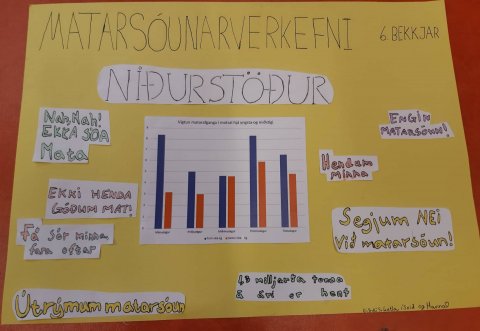 MATARSÓUNARVERKEFNI
6. BEKKJAR
NIÐURSTÖÐUR
Nah, Nah!
EKKA SÓA
Mata
ENGIN
MATARSÓUN!
Hendum
minna
EKKI HENDA
GÓÐUM MAT!
Fá sér minna,
fara oftar
Segjum NEI
við matarsóun!
Útrýmum matarsóun
1,3 milljarða tonna
á ári er hent